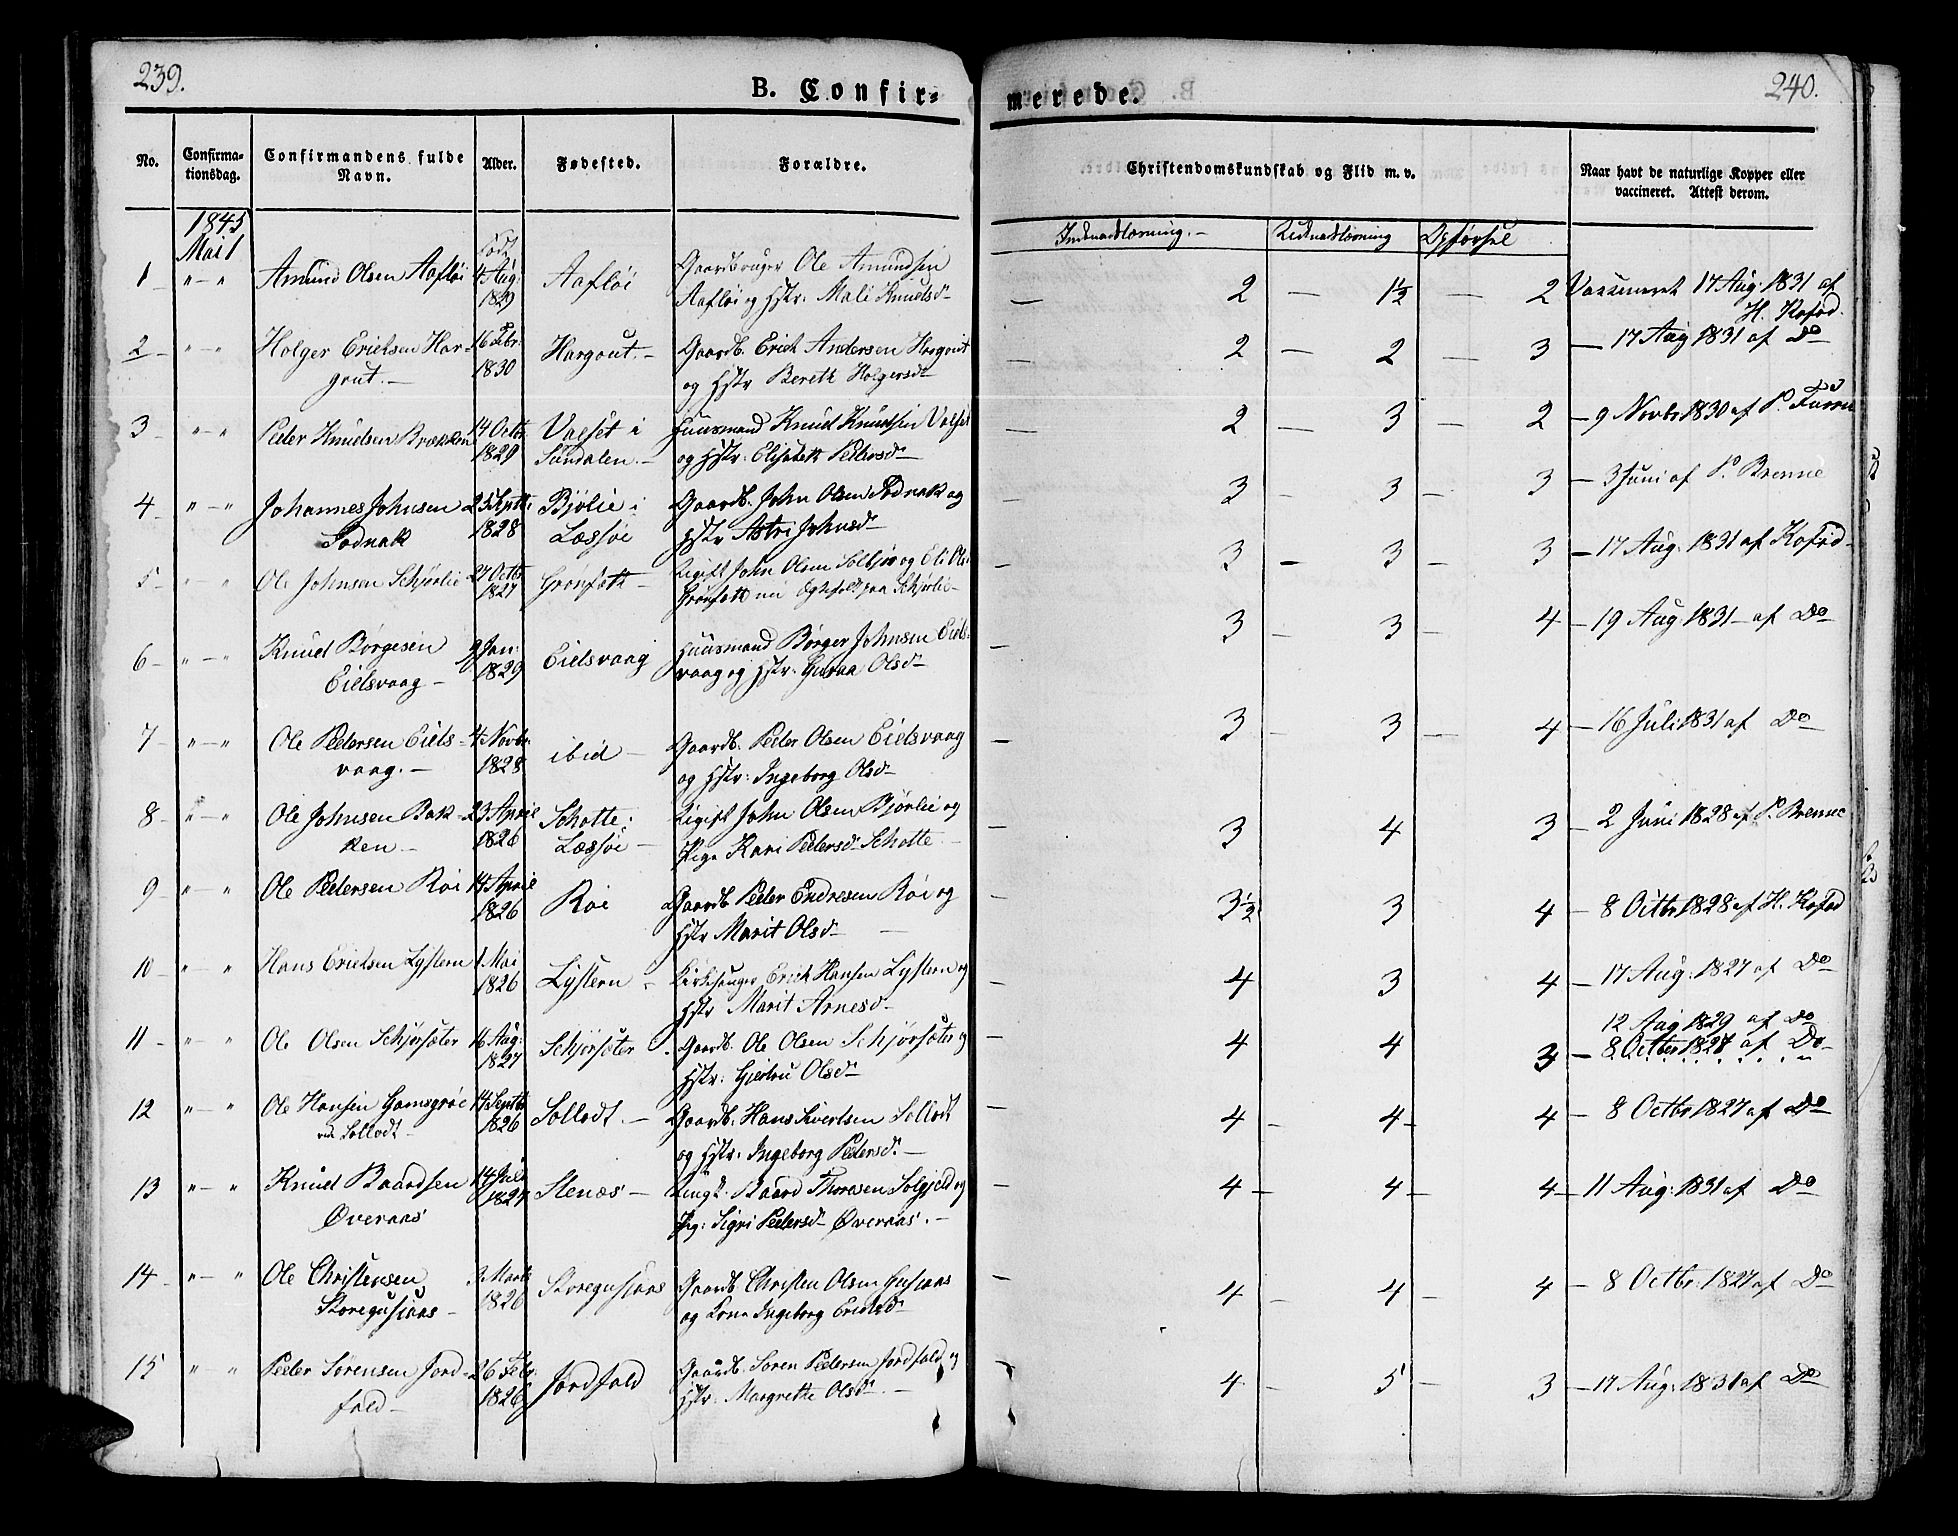 239.
B. Confir-
merede.
240.
No.
Confirma-
tionsdag.
Confirmandens fulde
Navn.
Alder.
Fødested.
Forældre.
Christendomskundskab og Flid m. v.
Naar havt de naturlige Kopper eller
vaccineret. Attest derom.
Indenadlæsning. —
Udenadlæsning
Opførsel
1845
Mai 1
1 " — " Amund Olsen Aafløi
Født
4 Aug:
1829
Aafløi
Gaardbruger Ole Amundsen
Aafløi og Hstr: Mali Knudsd
2 — 1½ — 2
Vaccineret 17 Aug: 1831 af
H. Kofod.
2 " — " Holger Erichsen Har-
gout. —
16 Febr:
1830
Hargout. —
Gaardb. Erich Andersen Hargout
og Hstr Bereth Holgersd
2 — 2 — 3
— 17 Aug 1831 af Do
3 " — " Peder Knudsen Brækken
14 Octb
1829
Valset i
Sundalen. —
Huusmand Knud Knudsen Valset
og Hstr: Elisabeth Pedersd
2 3 — 2
— 9 Novbr 1830 af P. Furru
4 " — " Johannes Johnsen
Sødnak
2 Septb:
1828
Bjølie i
Læssøe
Gaardb. John Olsen Sødnak og
Hstr Astri Johnsd
3 — 3 — 3
— 3 Juni af P. Brenne
5 " " Ole Johnsen Schjørlie
27 Octb
1827
Grønfæth —
Ugift John Olsen Solbjør og Eli Ols:
Grønfæth nu Ægtefolk paa Schjørlie
3 — 3 — 3
— 17 Aug: 1831 af Kofod —
6 " — " Knud Børgesen
Eidsvaag —
9 Jan:
1829
Eidsvaag
Huusmand Børger Johnsen Eids-
vaag og Hstr: Guroa Olsd
3 — 3 — 4
— 19 Aug 1831 — af Do
7 " — " Ole Pedersen Eids-
vaag. —
4 Novbr.
1828
ibid —
Gaardb. Peder Olsen Eidsvaag
og Hstr: Ingeborg Olsd
3 — 3 — 4
— 16 Juli 1831 af Do
8 " — " Ole Johnsen Bak-
ken —
23 April
1826
Schotte i
Læssøe —
Ugift John Olsen Bjørlie og
Pige Kari Pedersd Schotte. —
3 4 3
— 2 Juni 1828 af P. Brenne
9 " " Ole Pedersen Röi
14 April
1826
Röi
Gaardb Peder Endresen Röi og
Hstr Marit Olsd —
3½ 3 4
— 8 Octbr 1828 af H. Kofod
10 " " Hans Erichsen Lystern
1 Mai
1826
Lystern -
Kirkesanger Erich Hansen Lystern og
Hstr Marit Arnesd
4 3 4
— 17 Aug: 1827 af Do
11 " " Ole Olsen Schjørsæter
16 Aug:
1827
Schjørsæter
Gaardb. Ole Olsen Schjørsæter og
Hstr: Gjertru Olsd
4 4 3
12 Aug 1829 af Do
— 8 Octbr 1827 af Do
12 " — " Ole Hansen Gamsgröe
Sollodt —
14 Septb
1826
Sollodt. —
Gaardb. Hans Sivertsen Sollodt
og Hstr: Ingeborg Pedersd. —
4 — 4 — 4
— 8 Octbr 1827 af Do
13 " — " Knud Baardsen
Øveraas
14 Juli
1827
Stenæs —
Ungk. Baard Thoresen Solgjeld og
Pig: Sigri Pedersd Øveraas. —
4 — 4 — 4
— 11 Aug: 1831 af Do
14 " — " Ole Christensen
Storegusiaas —
3 Marts
1826
Storegusiaas
Gaardb. Christen Olsen Gusiaas
og Kone Ingeborg Erichsd
4 — 4 — 4
— 8 Octbr: 1827 af Do
15 " " Peder Sørensen Jord-
fald —
26 Febr.
1826
Jordfald
Gaardb. Søren Pedersen Jordfald og
Hstr: Margrethe Olsd. —
4 — 5 — 3
— 17 Aug: 1831 af Do